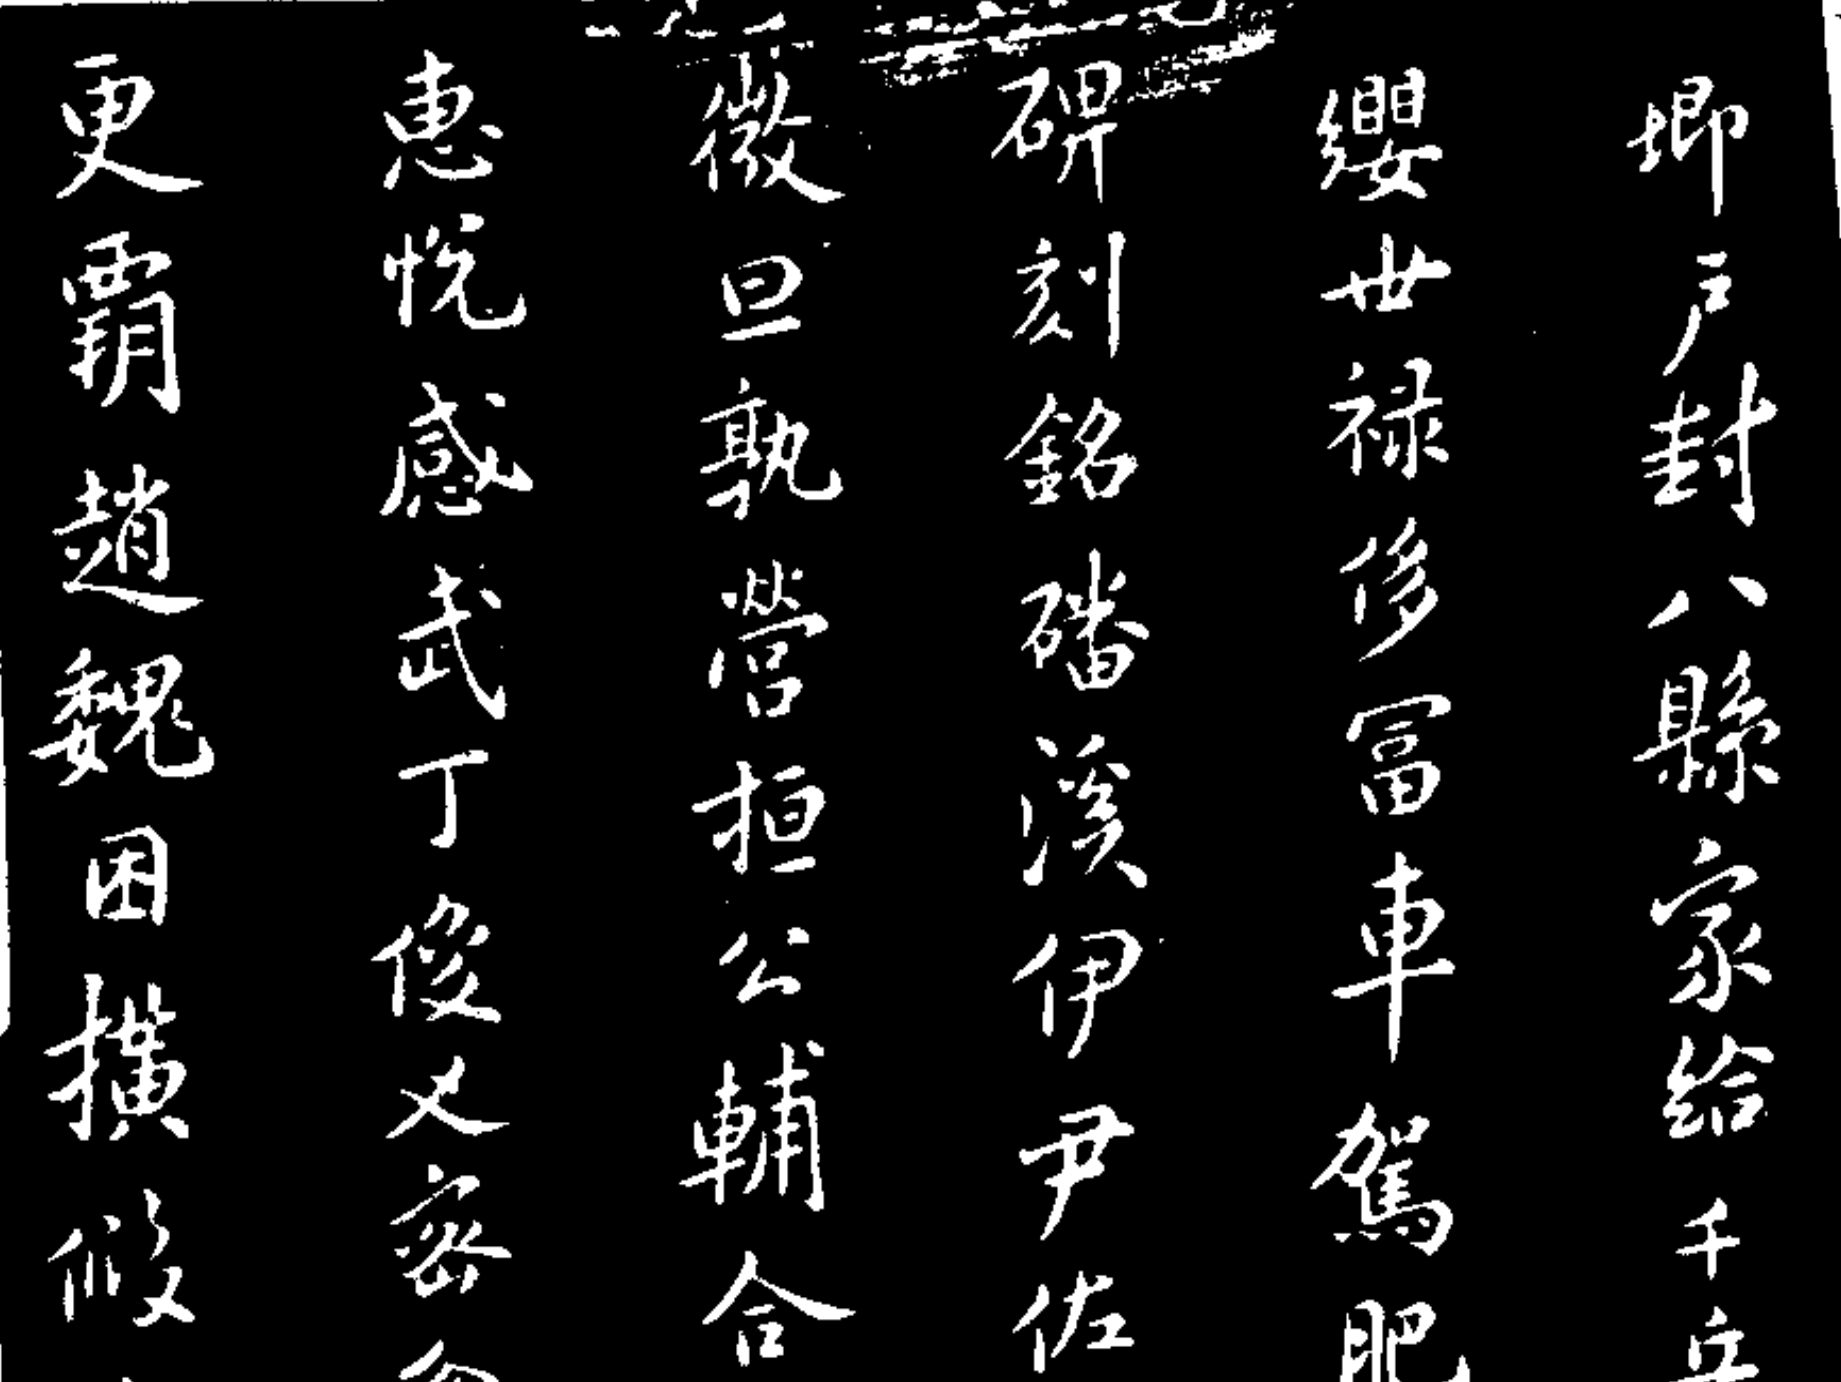 卿户封八縣家給千兵
纓世禄侈富車駕肥
碑刻銘磻溪伊尹佐
微旦孰營桓公輔合
惠悦感武丁俊乂密
更霸趙魏困橫假